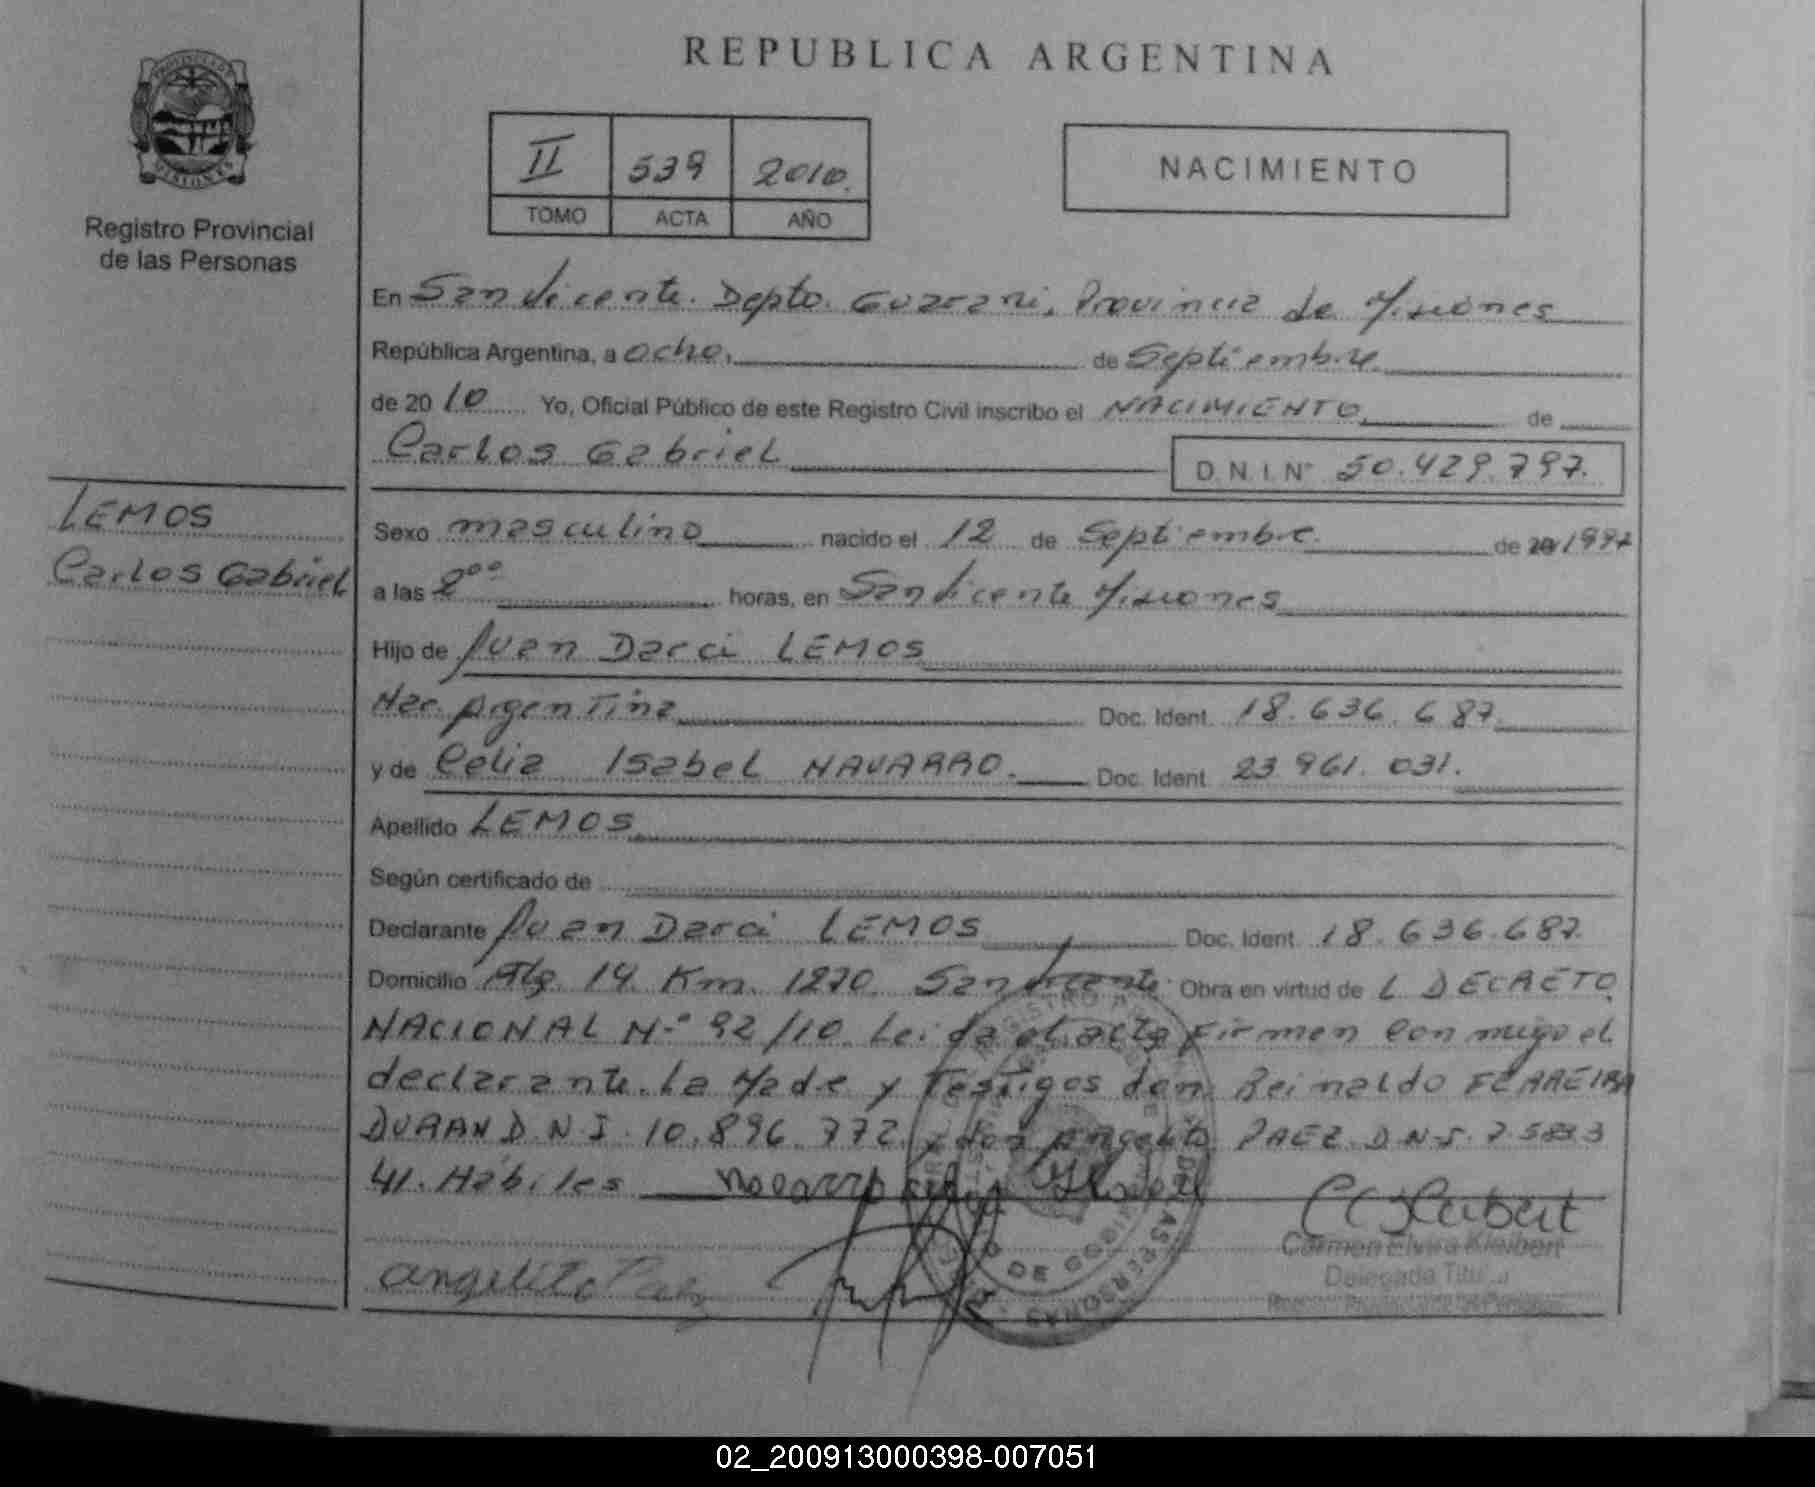 REPUBLICA ARGENTINA
PROVINCIA DE MISIONES
Registro Provincial
de las Personas
II 539 2010.
TOMO ACTA AÑO
NACIMIENTO
En San Vicente. Depto. Guarani, Provincia de Misiones
República Argentina, a ocho, de Septiembre.
de 2010 Yo, Oficial Público de este Registro Civil inscribo el NACIMIENTO de
Carlos Gabriel D.N.I. N° 50.429.797.
LEMOS
Carlos Gabriel
Sexo masculino nacido el 12 de Septiembre de 20 1997
a las 8°° horas, en San Vicente Misiones
Hijo de Juan Darci LEMOS
Nac. Argentina Doc. Ident. 18.636.687.
y de Celia Isabel NAVARRO. Doc. Ident. 23 961.031.
Apellido LEMOS
Según certificado de
Declarante Juan Darci LEMOS Doc. Ident. 18.636.687.
Domicilio 14 Km. 1270 San Vicente Obra en virtud de L DECRETO
NACIONAL N-° 92/10. Leida el acta Firmen conmigo el
declarante. La Madre y Testigos don. Reinaldo FERREIRA
DURAN D.N.I. 10.896.772. y don Angelito PAEZ D.N.I. 7.583
41. Habiles Navarro Celia
angelito Paez
Carmen Elvira Kleibert
Delegada Titular
02_200913000398-007051